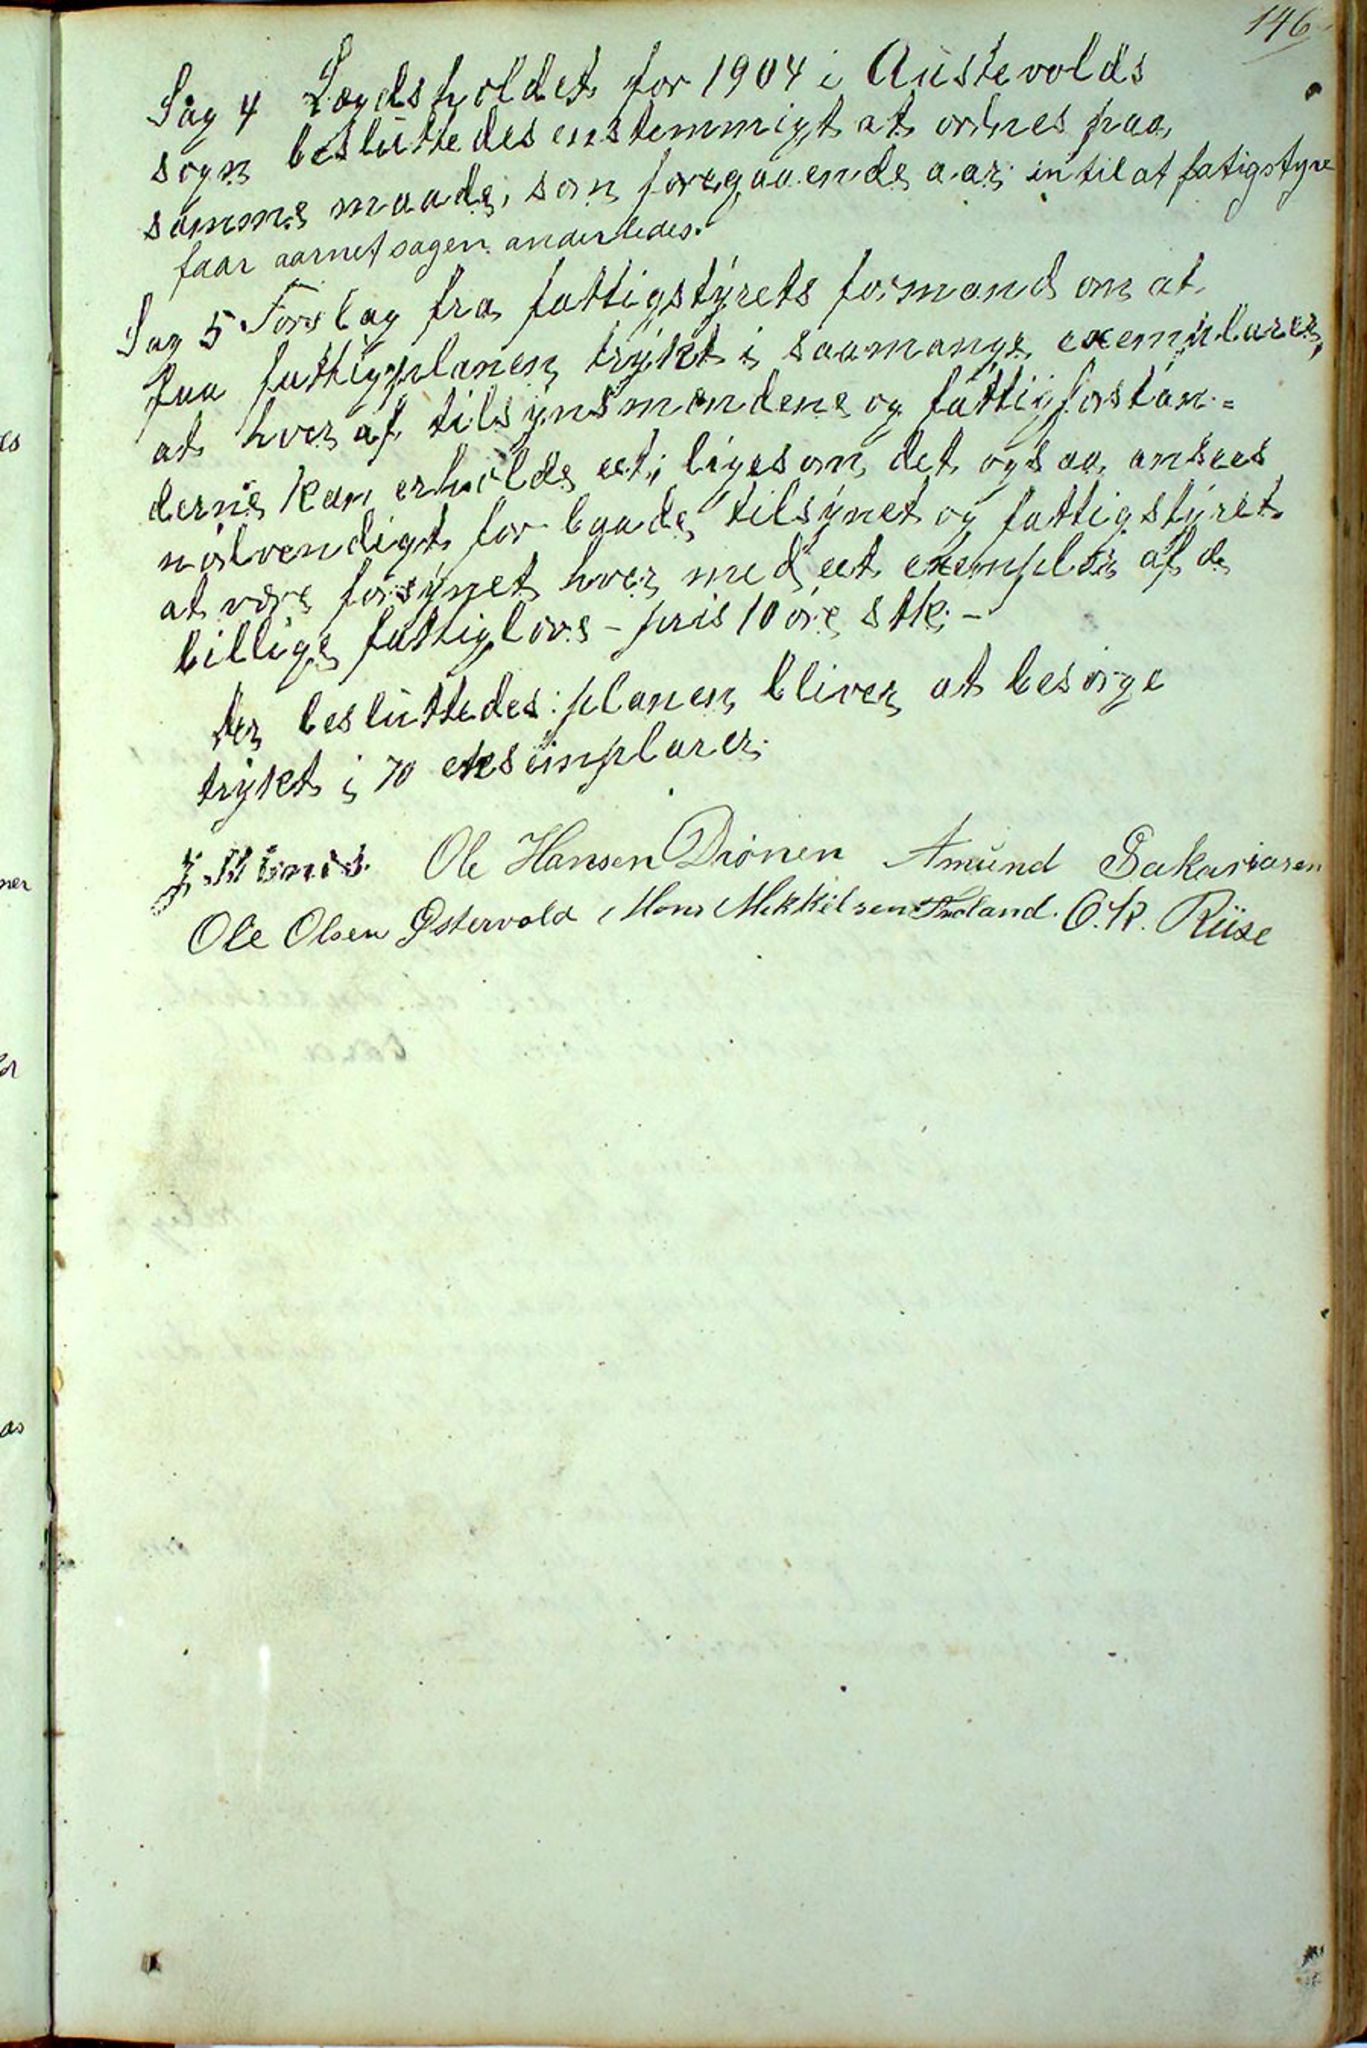 146
Sag 4 Lægdsholdet for 1904 i Austevolds
sogn besluttedes enstemmigt at ordnes paa
samme maade, som foregaaende aar intil at fatigstyre
faar aarnet sagen anderledes.
Sag 5 Forslag fra fattigstyrets formand om at
faa fattigplanen trykt i saamange exemplarer,
at hver af tilsynsmændene og fattigforstan-
derne kan erholde eet, ligesom det ogsaa ansees
nødvendigt for baade tilsynet og fattigstyret
at være forsynet hver med eet exemplar af de
billige fattiglove - pris 10 øre stk. -
Der besluttedes: planen bliver at besørge
trykt i 70 eksemplarer.
Ole Hansen Drönen Amund Sakariasen
Ole Olsen Østervold Mons Mikkelsen Troland. O. K. Riise